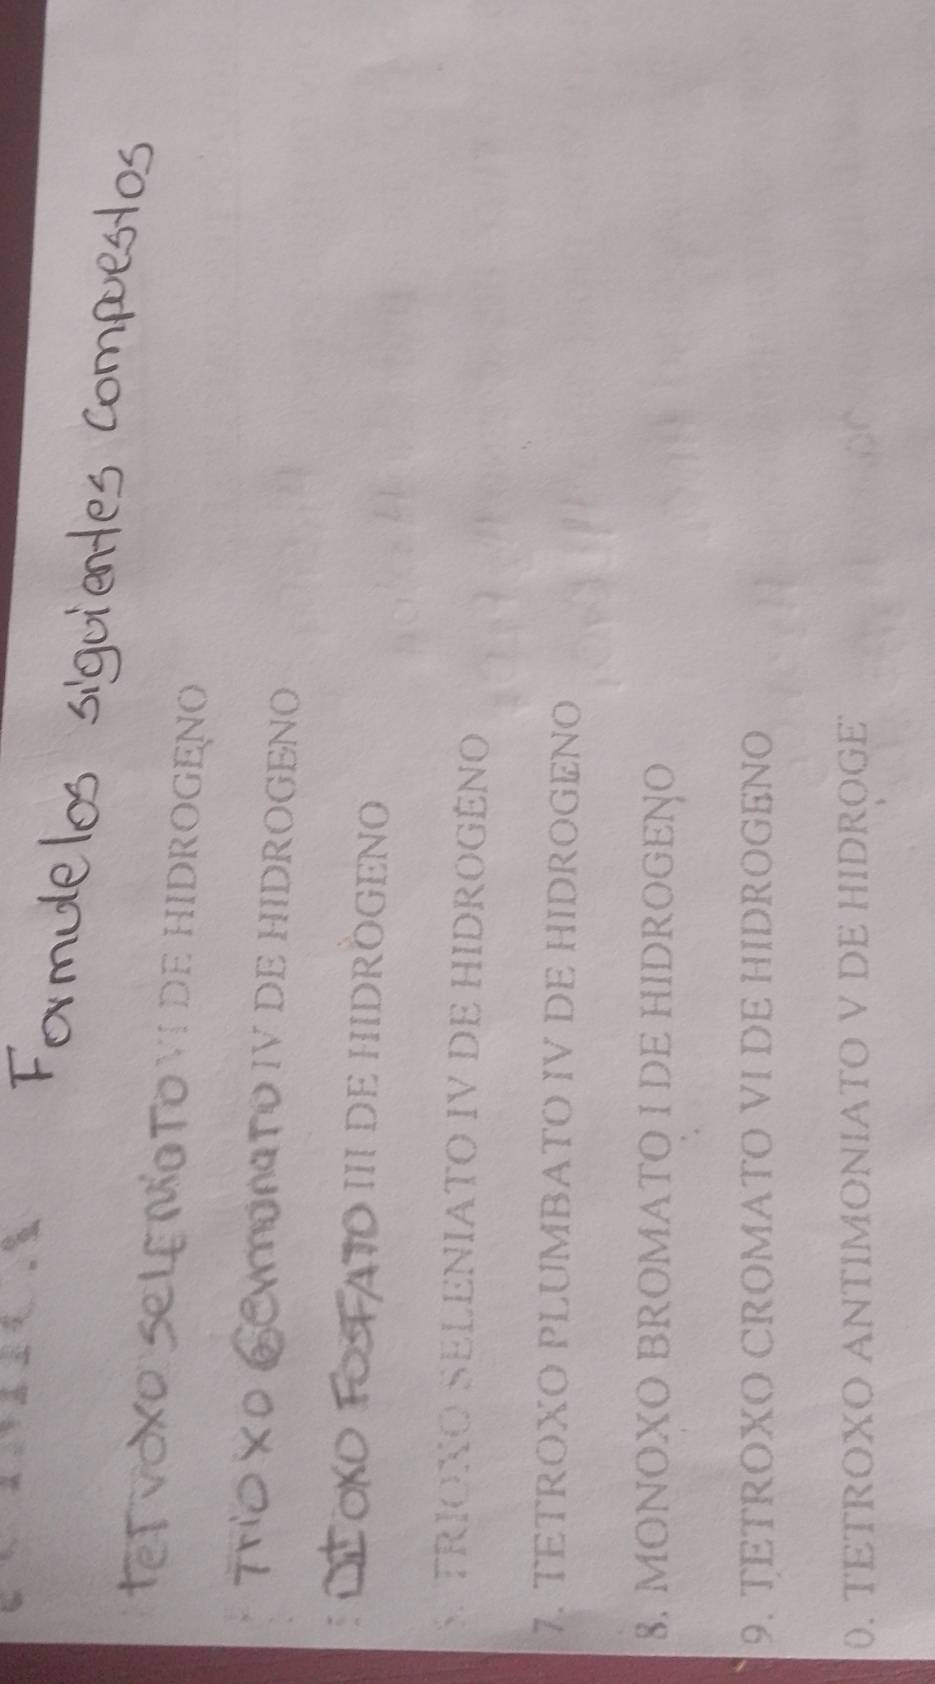 Formule los siguientes compuestos
teTroxo SeLENiaTO VI DE HIDROGENO
Trioxo GermanaTO IV DE HIDROGENO
DIOXO FOSFATO III DE HIDROGENO
TRIOXO SELENIATO IV DE HIDROGENO
7. TETROXO PLUMBATO IV DE HIDROGENO
8. MONOXO BROMATO I DE HIDROGENO
9. TETROXO CROMATO VI DE HIDROGENO
0. TETROXO ANTIMONIATO V DE HIDROGE